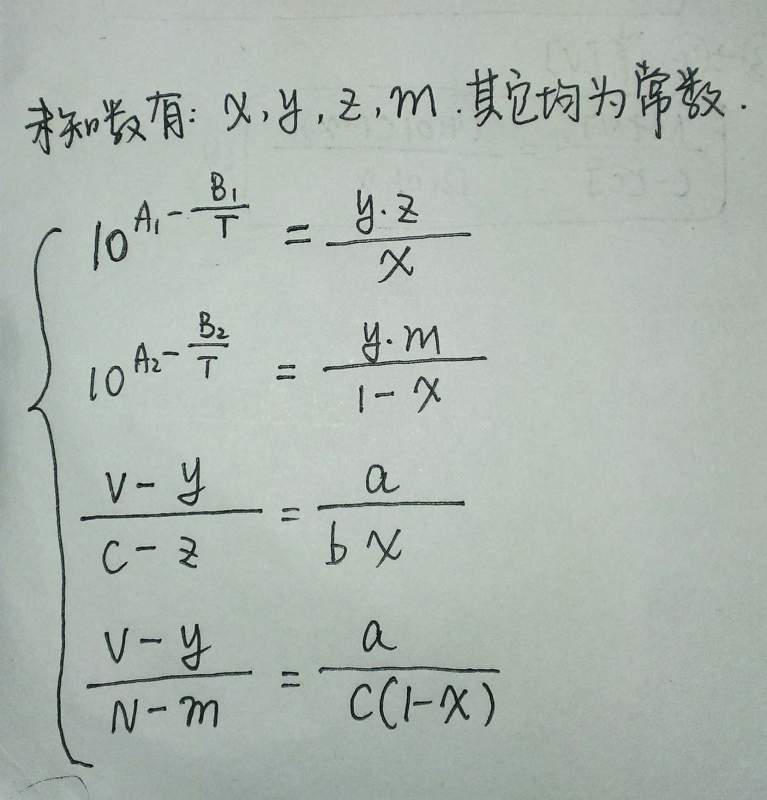 未知数有: x, y, z, m. 其它均为常数.
10^{A₁ - \frac{B₁}{T}} = \frac{y·z}{x}
10^{A₂ - \frac{B₂}{T}} = \frac{y·m}{1-x}
\frac{V-y}{C-z} = \frac{a}{bx}
\frac{V-y}{N-m} = \frac{a}{C(1-x)}